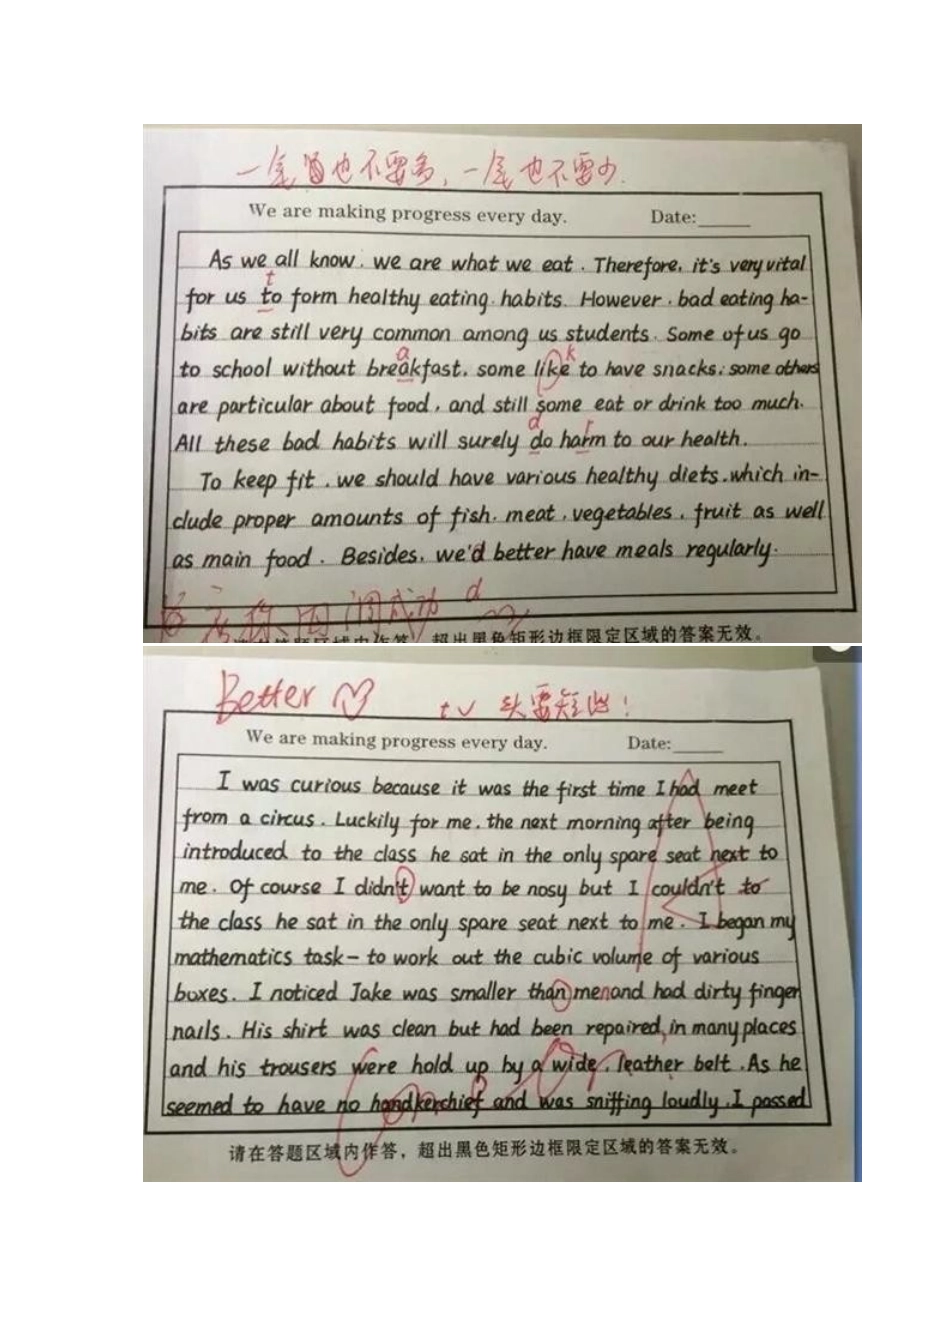 一尾曾也不要多，一尾也不要少.
We are making progress every day. Date:
As we all know, we are what we eat. Therefore, it's very vital
t
for us to form healthy eating habits. However, bad eating ha-
bits are still very common among us students. Some of us go
a k
to school without breakfast, some like to have snacks, some others
are particular about food, and still some eat or drink too much.
d r
All these bad habits will surely do harm to our health.
To keep fit, we should have various healthy diets, which in-
clude proper amounts of fish, meat, vegetables, fruit as well
as main food. Besides, we'd better have meals regularly.
d
请在答题区域内作答，超出黑色矩形边框限定区域的答案无效。
Better
tv 头要短些！
We are making progress every day. Date:
I was curious because it was the first time I had meet
from a circus. Luckily for me, the next morning after being
introduced to the class he sat in the only spare seat next to
me. Of course I didn't want to be nosy but I couldn't to
the class he sat in the only spare seat next to me. I began my
mathematics task- to work out the cubic volume of various
boxes. I noticed Jake was smaller than menand had dirty finger
nails. His shirt was clean but had been repaired, in many places
and his trousers were hold up by a wide, leather belt. As he
seemed to have no handkerchief and was sniffing loudly, I passed
请在答题区域内作答，超出黑色矩形边框限定区域的答案无效。